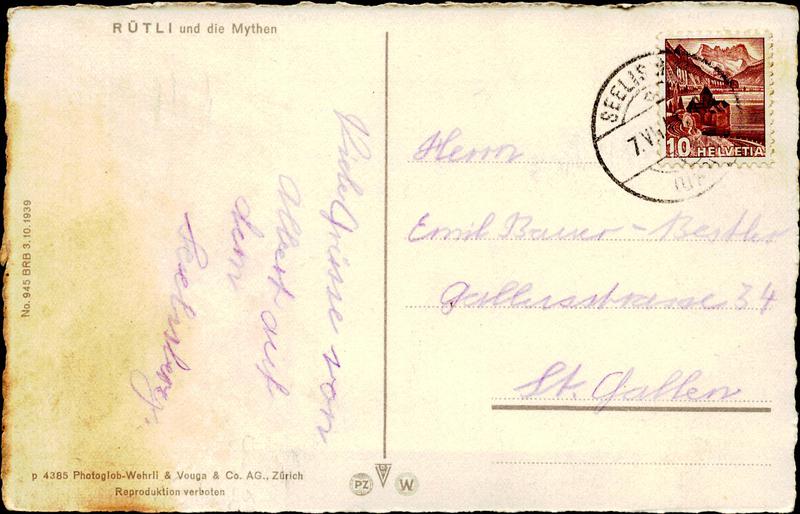 RÜTLI und die Mythen
No. 945 BRB 3.10.1939
Viele Grüsse von
Albert auf
dem
Seelisberg.
p 4385 Photoglob-Wehrli & Vouga & Co. AG., Zürich
Reproduktion verboten
PZ
W
SEELIS
7.VII
10 HELVETIA
Herrn
Emil Bauer-Bestler
Gallusstrasse 34
St. Gallen